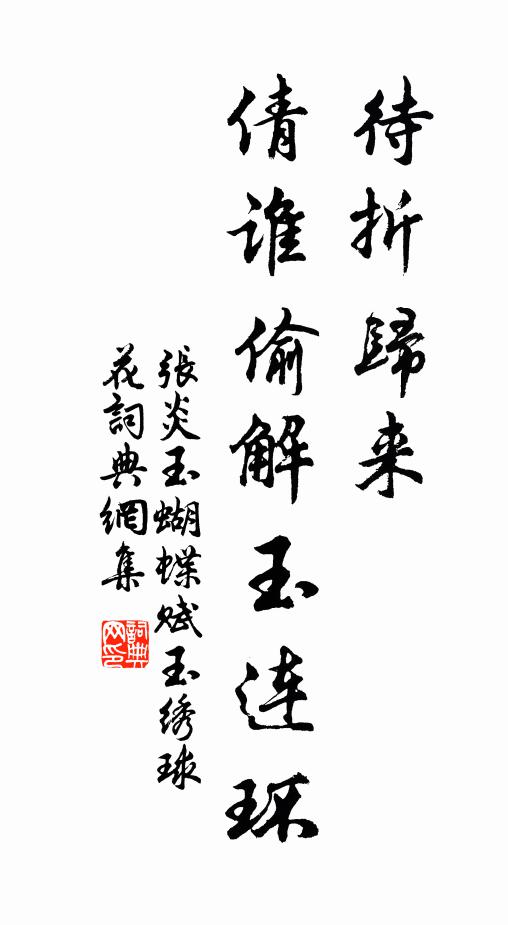 待折歸来
倩谁偷解玉连环
張炎玉蝴蝶赋玉绣球
花詞典網集
詞典
网印